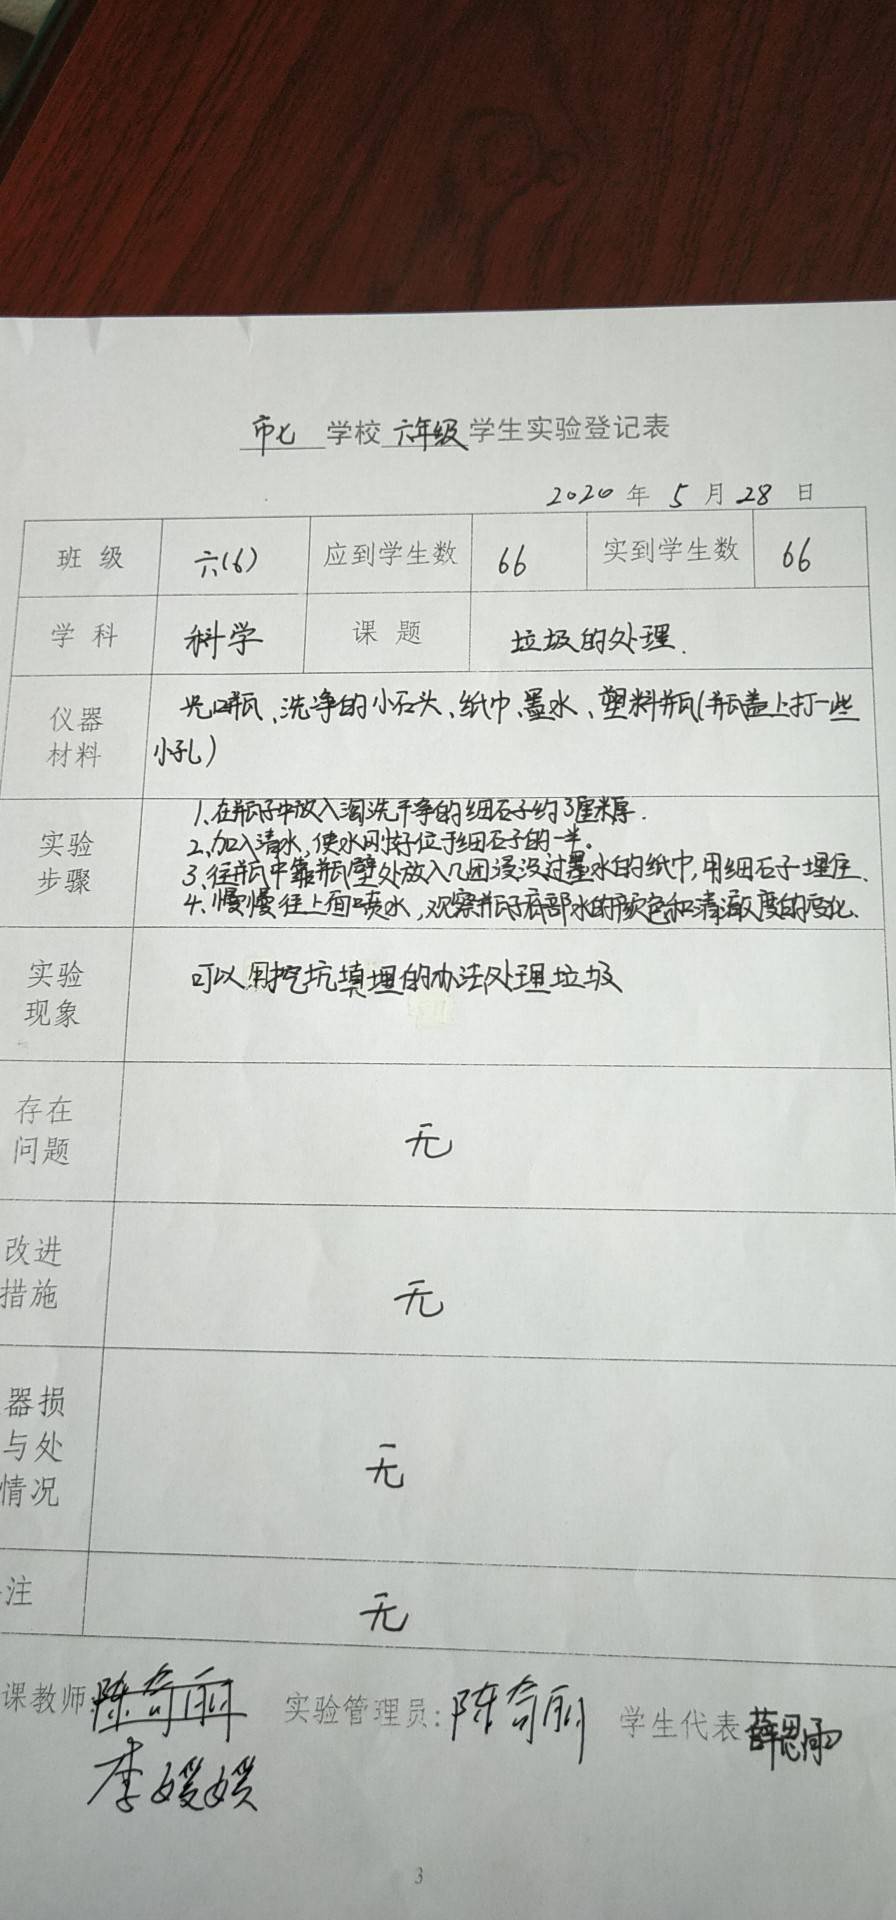 市七 学校 六年级 学生实验登记表
2020 年 5 月 28 日
班 级 六(6) 应到学生数 66 实到学生数 66
学 科 科学 课 题 垃圾的处理.
仪器
材料
广口瓶、洗净的小石头、纸巾、墨水、塑料瓶(瓶盖上打一些
小孔)
实验
步骤
1、在瓶子中放入淘洗干净的细石子约3厘米厚.
2、加入清水,使水刚好位于细石子的一半。
3、往瓶中靠瓶壁处放入几团浸没过墨水的纸巾,用细石子埋住.
4、慢慢往上面喷水,观察瓶子底部水的颜色和清澈度的变化.
实验
现象
可以用挖坑填埋的办法处理垃圾
存在
问题
无
改进
措施
无
器损
与处
情况
无
注
无
课教师: 陈奇丽 实验管理员: 陈奇丽 学生代表 薛思雨
李媛媛
3